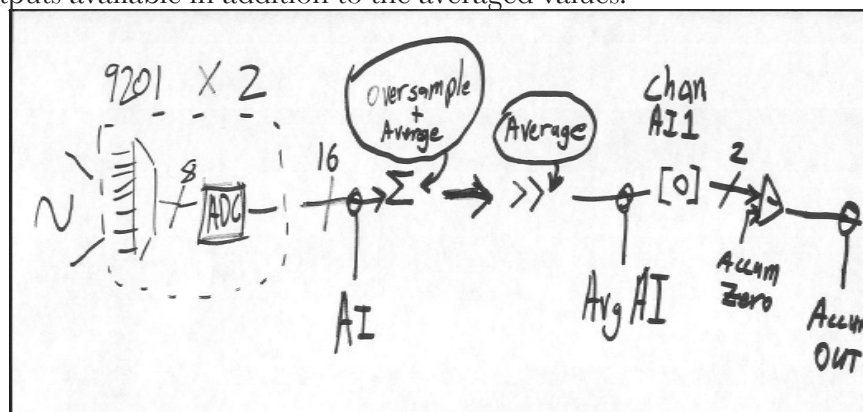 puts available in addition to the averaged values.
9201 X 2
8
ADC
16
AI
Oversample
+
Average
Σ
>>
Average
Avg AI
Chan
AI1
[0]
2
Accum
Zero
Accum
OUT